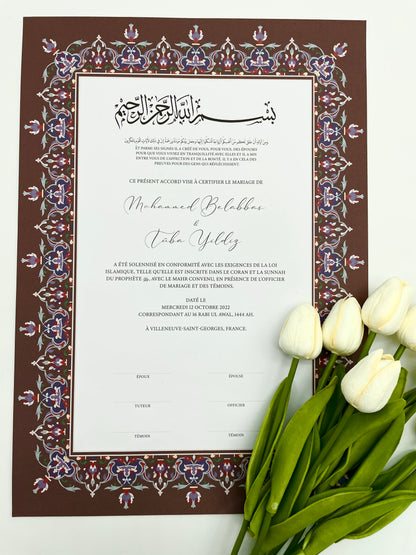 بسم الله الرحمن الرحيم
ET PARMI SES SIGNES IL A CRÉÉ DE VOUS, POUR VOUS, DES ÉPOUSES
POUR QUE VOUS VIVIEZ EN TRANQUILLITÉ AVEC ELLES ET IL A MIS
ENTRE VOUS DE L'AFFECTION ET DE LA BONTÉ. IL Y A EN CELA DES
PREUVES POUR DES GENS QUI RÉFLÉCHISSENT.
CE PRÉSENT ACCORD VISE À CERTIFIER LE MARIAGE DE
Mohammed Belabbas
&
Tüba Yildiz
A ÉTÉ SOLENISÉ EN CONFORMITÉ AVEC LES EXIGENCES DE LA LOI
ISLAMIQUE, TELLE QU'ELLE EST INSCRITE DANS LE CORAN ET LA SUNNAH
DU PROPHÈTE ﷺ, AVEC LE MAHR CONVENU, EN PRÉSENCE DE L'OFFICIER
DE MARIAGE ET DES TÉMOINS.
DATÉ LE
MERCREDI 12 OCTOBRE 2022
CORRESPONDANT AU 16 RABI UL AWAL, 1444 AH.
À VILLENEUVE-SAINT-GEORGES, FRANCE.
ÉPOUX ÉPOUSE
TUTEUR OFFICIER
TÉMOIN TÉMOIN